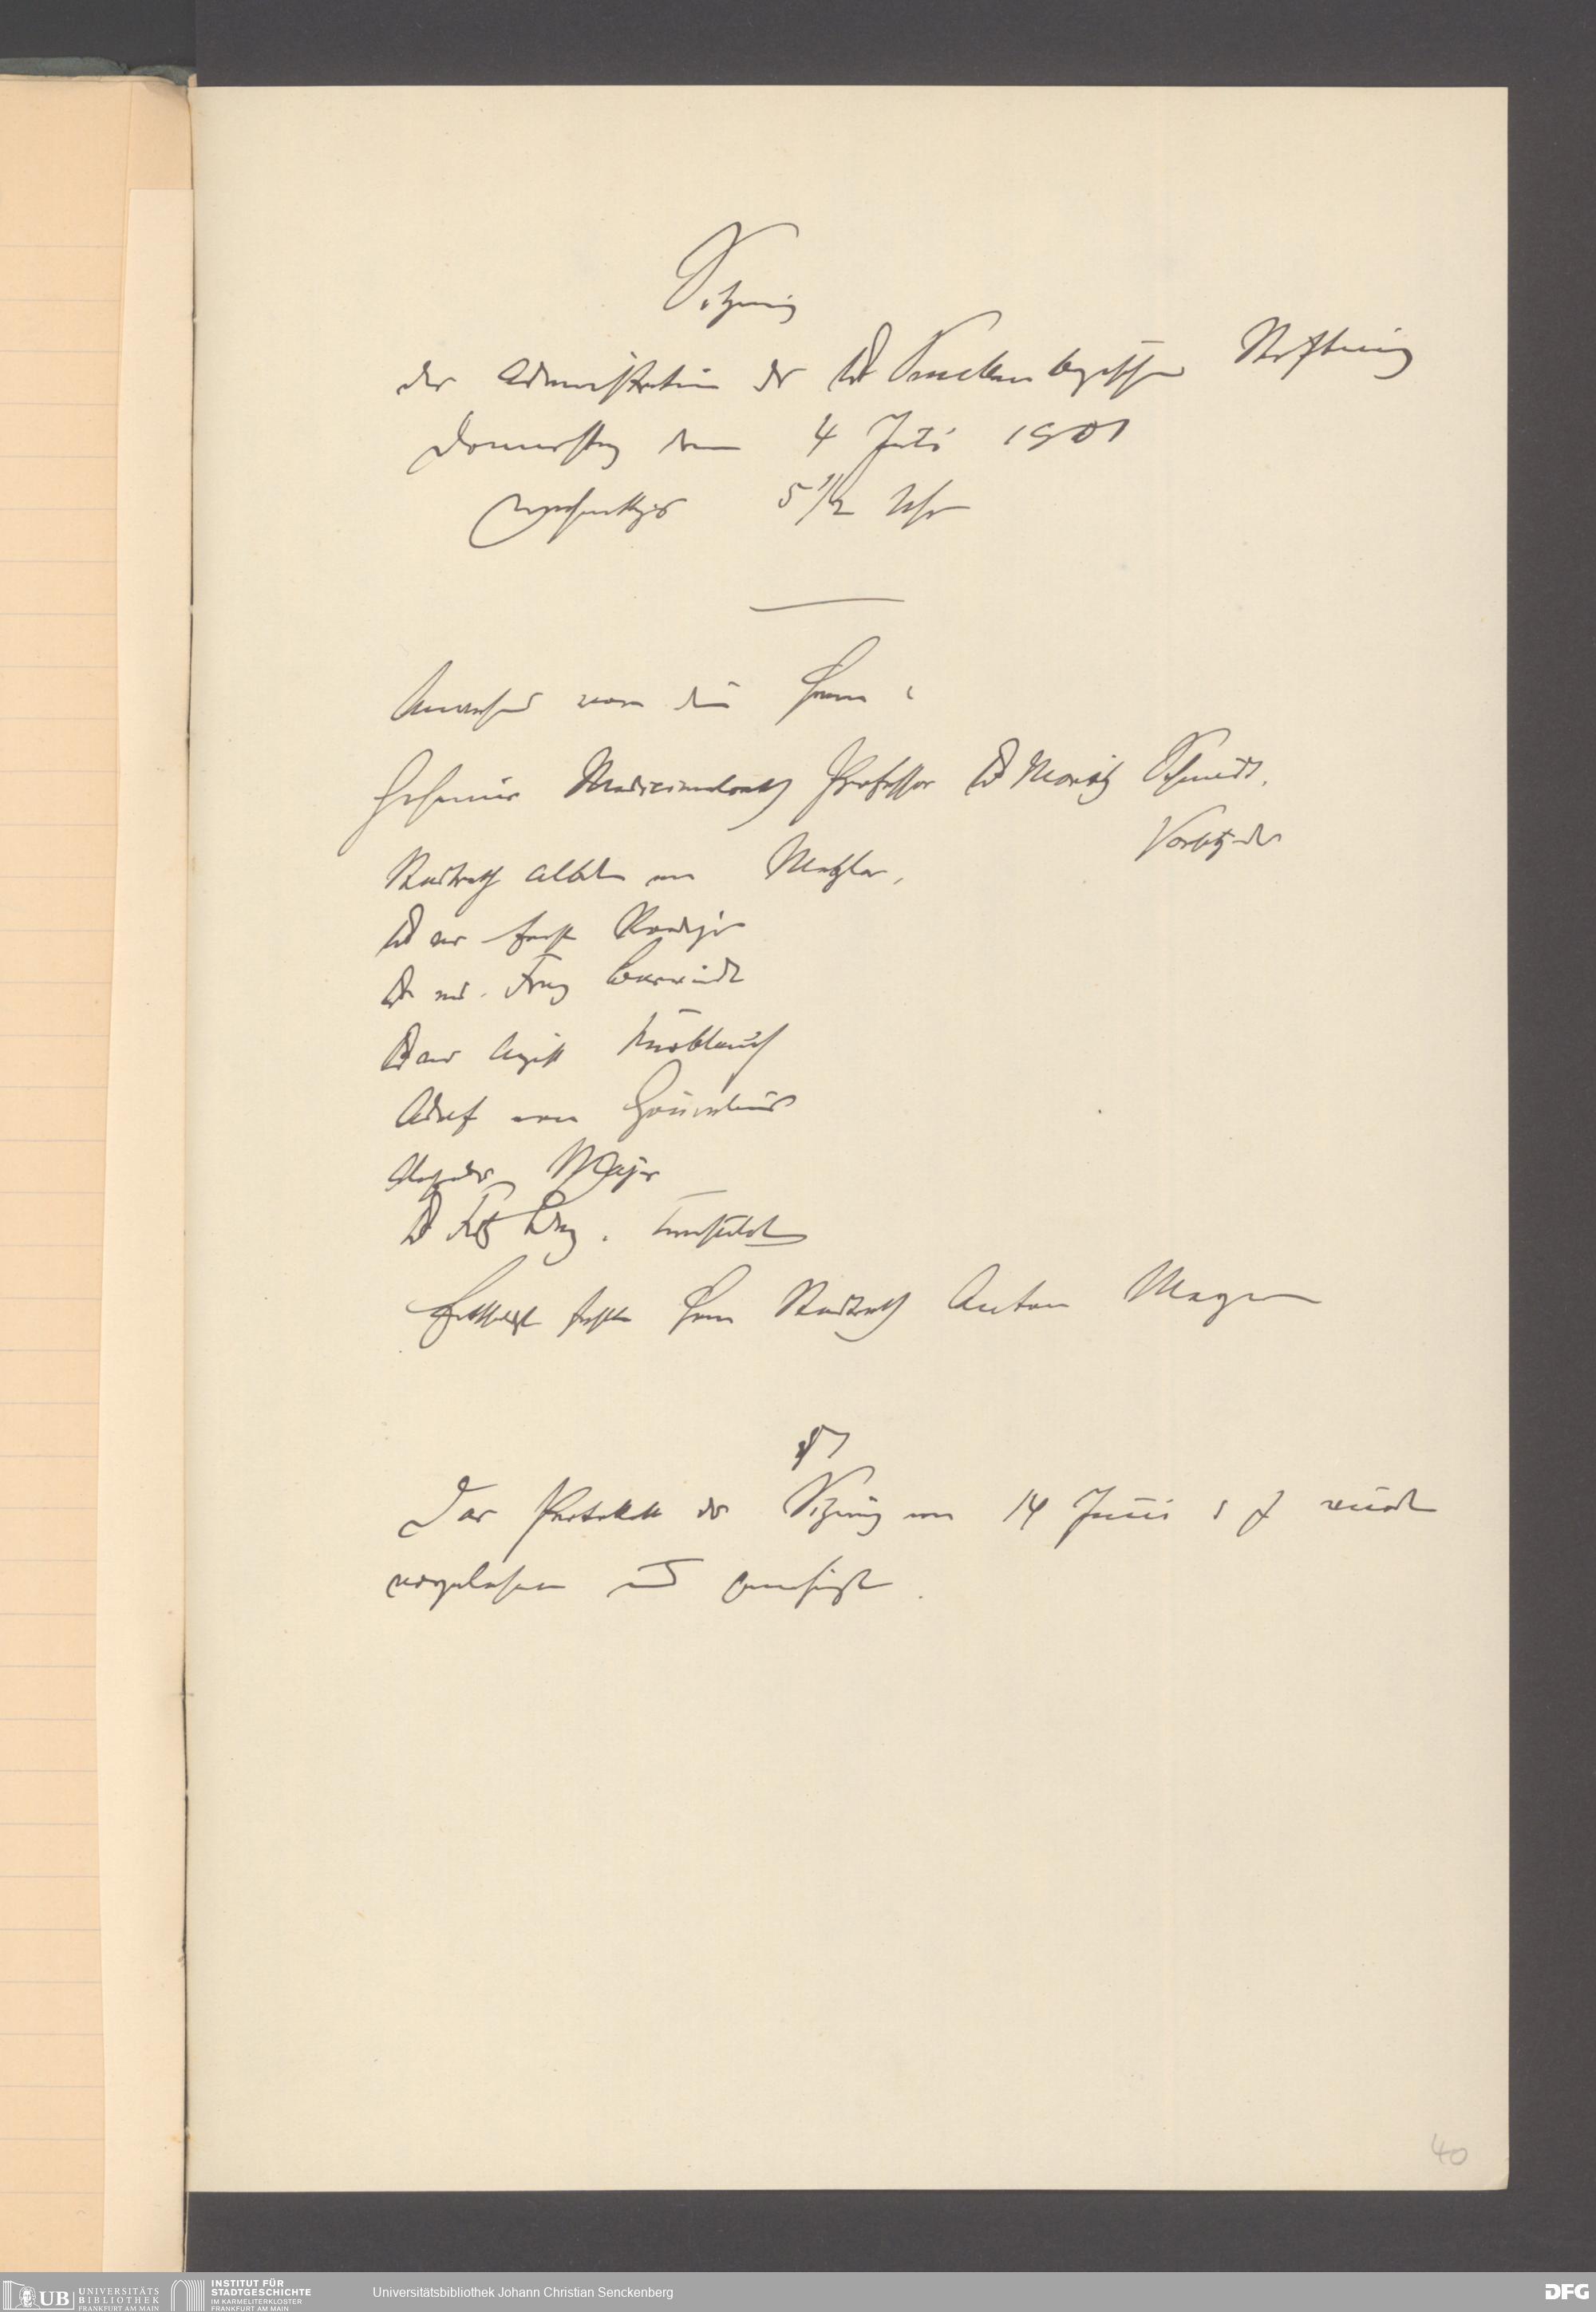 Sitzung
der Administration der Dr Senckenbergischen Stiftung
Donnerstag den 4 Juli 1901
nachmittags 5 1/2 Uhr
Anwesend waren die Herren:
Geheimer Medicinalrath Professor Dr Moritz Schmidt,
Vorsitzender
Stadtrath Albert von Metzler,
Dr Ernst Roediger
Dr med. Franz
Dr med August Knoblauch
Adolf von Grunelius
Alexander Majer
Dr Fritz Berg.
Entschuldigt fehlte Herr Stadtrath Anton Meyer
§ 1
Das Protokoll der Sitzung vom 14 Juni d J wurde
vorgelesen und genehmigt.
40
UB UNIVERSITÄTS
BIBLIOTHEK
FRANKFURT AM MAIN
INSTITUT FÜR
STADTGESCHICHTE
IM KARMELITERKLOSTER
FRANKFURT AM MAIN
Universitätsbibliothek Johann Christian Senckenberg
DFG